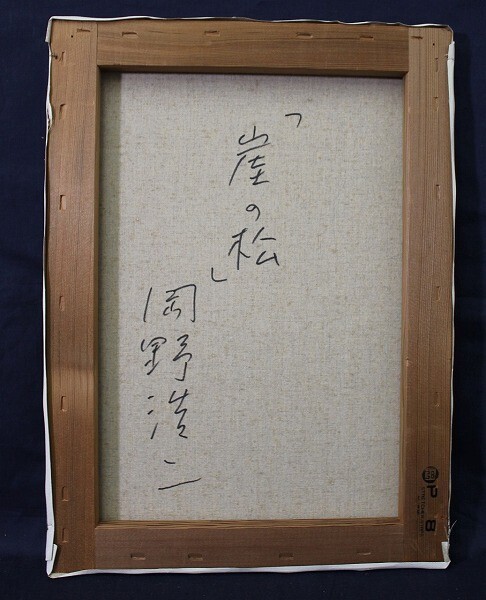 「崖の松」
岡野浩二
P8